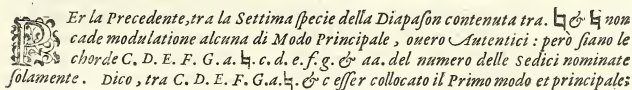 PEr la Precedente, tra la Settima ſpecie della Diapaſon contenuta tra. ♮ & ♮ non
cade modulatione alcuna di Modo Principale, ouero Autentici: però ſiano le
chorde C. D. E. F. G. a. ♮. c. d. e. f. g. & aa. del numero delle Sedici nominate
ſolamente. Dico, tra C. D. E. F. G. a. ♮. & c eſſer collocato il Primo modo et principale;